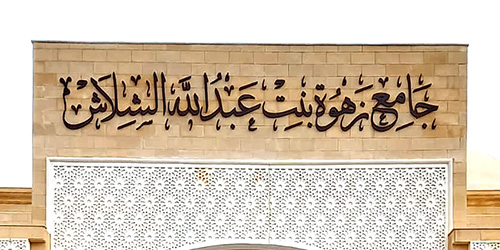 جامع زهوة بنت عبدالله الشلاش